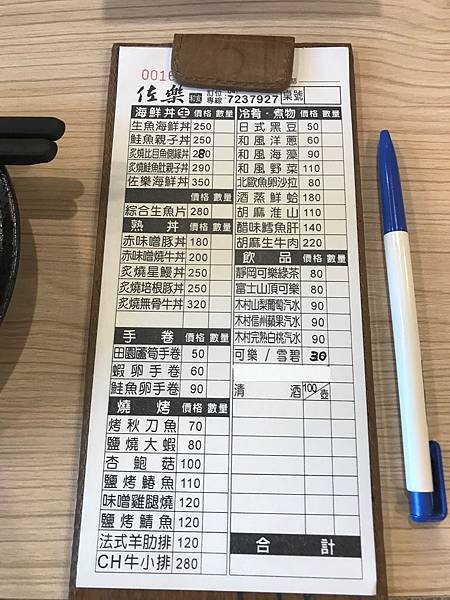 001
佐樂 訂位專線 7237927 桌號
海鮮丼 生 價格 數量
生魚海鮮丼 250
鮭魚親子丼 250
炙燒比目魚側緣丼 280
炙燒鮭魚肚親子丼 290
佐樂海鮮丼 350
價格 數量
綜合生魚片 280
熟丼 價格 數量
赤味噌豚丼 180
赤味噌燒牛丼 200
炙燒星鰻丼 250
炙燒培根豚丼 250
炙燒無骨牛丼 320
手卷 價格 數量
田園蘆筍手卷 50
蝦卵手卷 60
鮭魚卵手卷 90
燒烤 價格 數量
烤秋刀魚 70
鹽燒大蝦 80
杏鮑菇 100
鹽烤鯖魚 110
味噌雞腿燒 120
鹽烤鯖魚 120
法式羊肋排 120
CH牛小排 280
冷肴·煮物 價格 數量
日式黑豆 50
和風洋蔥 60
和風海藻 90
和風野菜 110
北歐魚卵沙拉 80
酒蒸鮮蛤 180
胡麻淮山 110
醋味鱈魚肝 140
胡麻生牛肉 220
飲品 價格 數量
靜岡可樂綠茶 80
富士山頂可樂 80
木村山梨葡萄汽水 90
木村信州蘋果汽水 90
木村完熟白桃汽水 90
可樂/雪碧 30
清酒 100/壺
合計